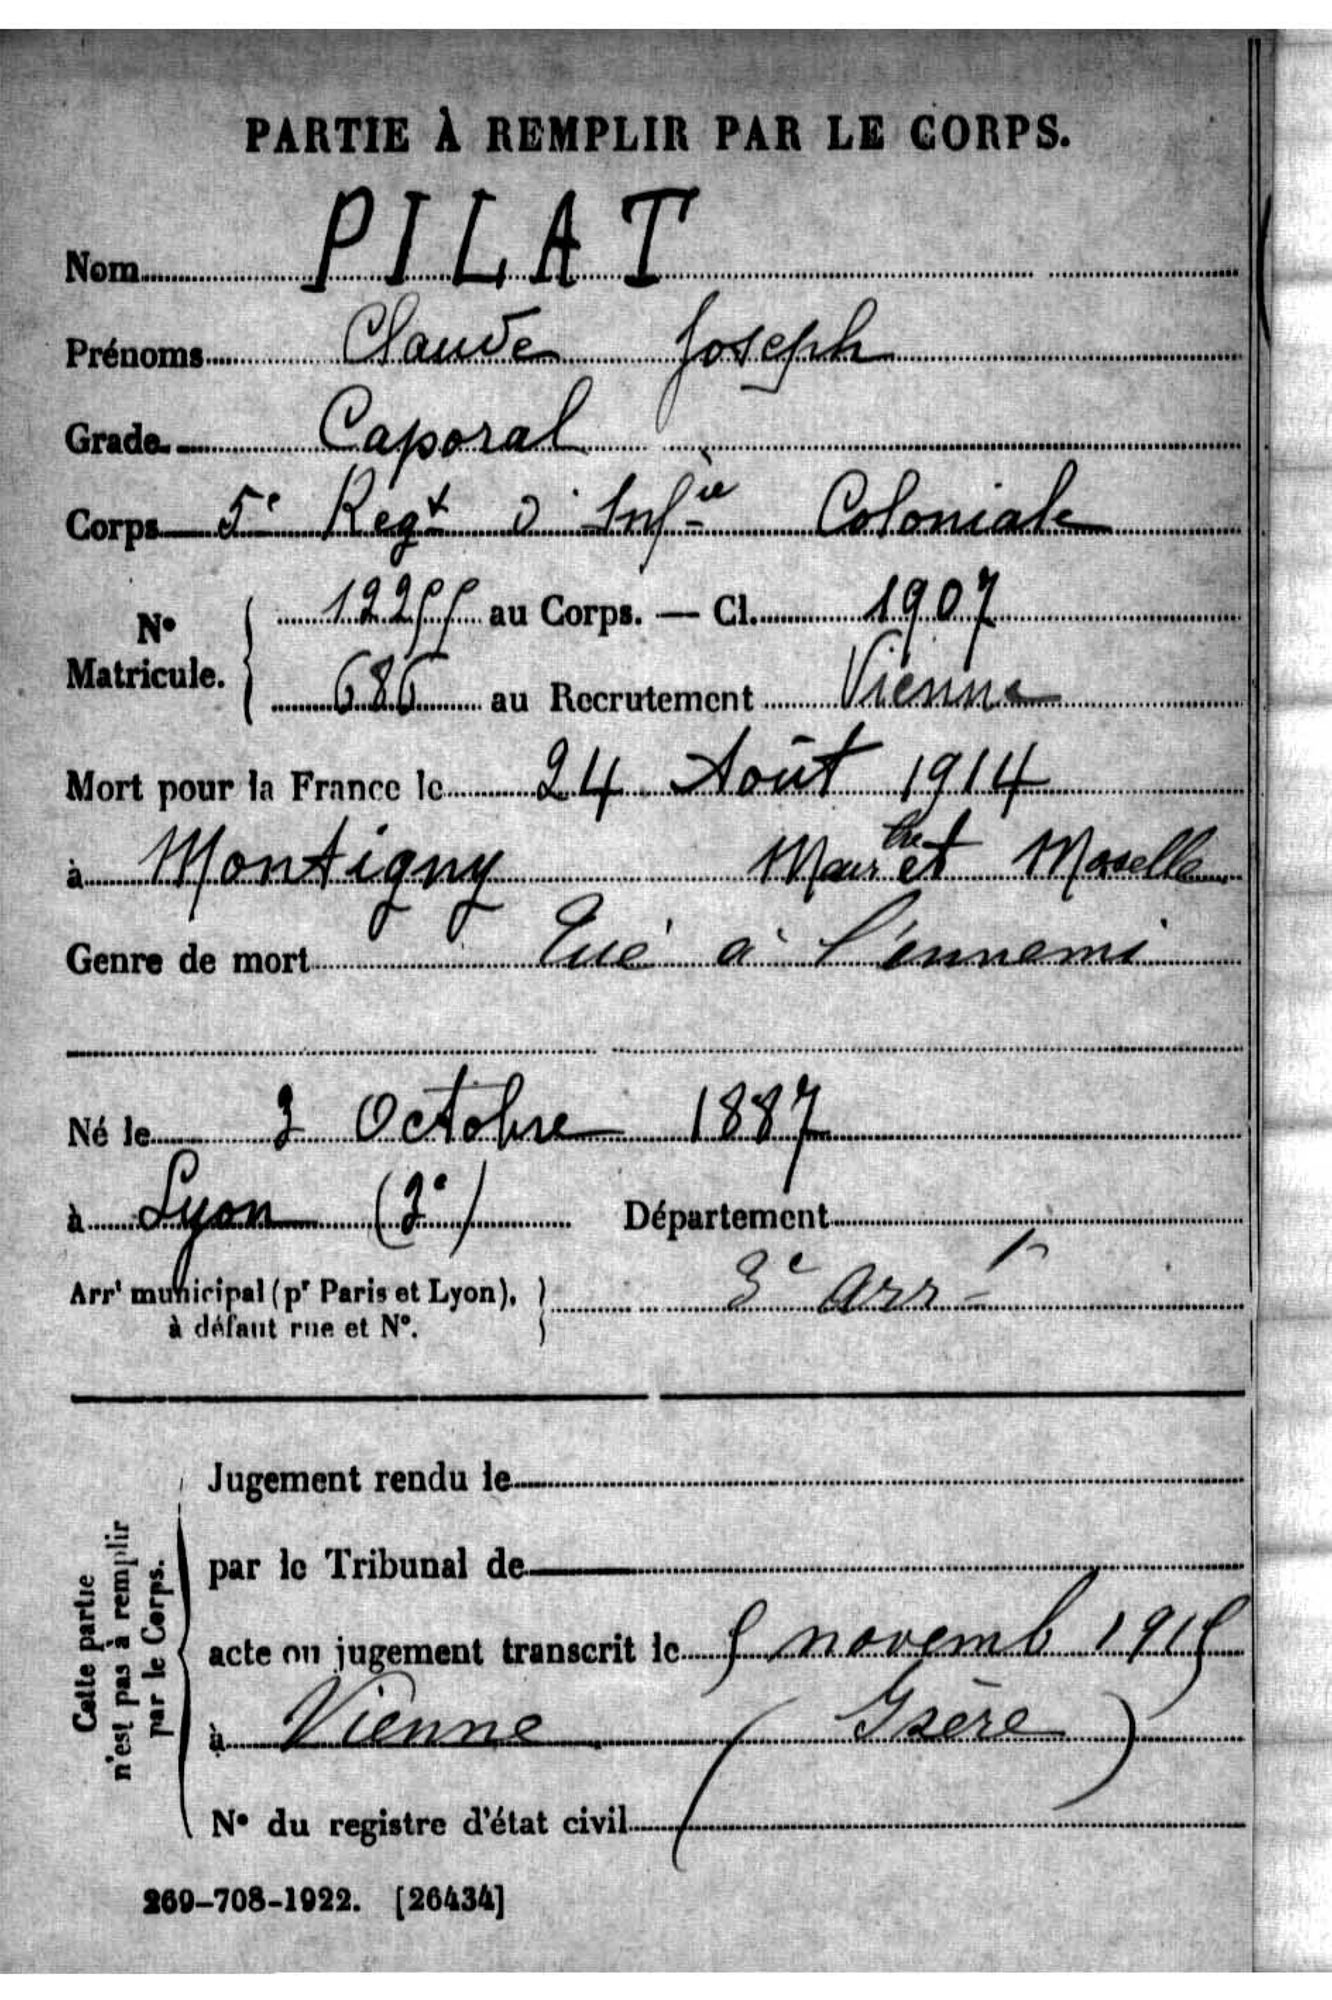 PARTIE À REMPLIR PAR LE CORPS.
Nom PILAT
Prénoms Claude Joseph
Grade Caporal
Corps 5e Regt d'Infie Coloniale
No Matricule. 12255 au Corps. — Cl. 1907
686 au Recrutement Vienne
Mort pour la France le 24 Août 1914
à Montigny Meurthe et Moselle
Genre de mort Tué à l'ennemi
Né le 3 Octobre 1887
à Lyon (3e) Département
Arrt municipal (pr Paris et Lyon), 3e arrt
à défaut rue et No.
Cette partie n'est pas à remplir par le Corps.
Jugement rendu le
par le Tribunal de
acte ou jugement transcrit le 5 novemb 1915
à Vienne (Isère)
No du registre d'état civil
269-708-1922. [26434]